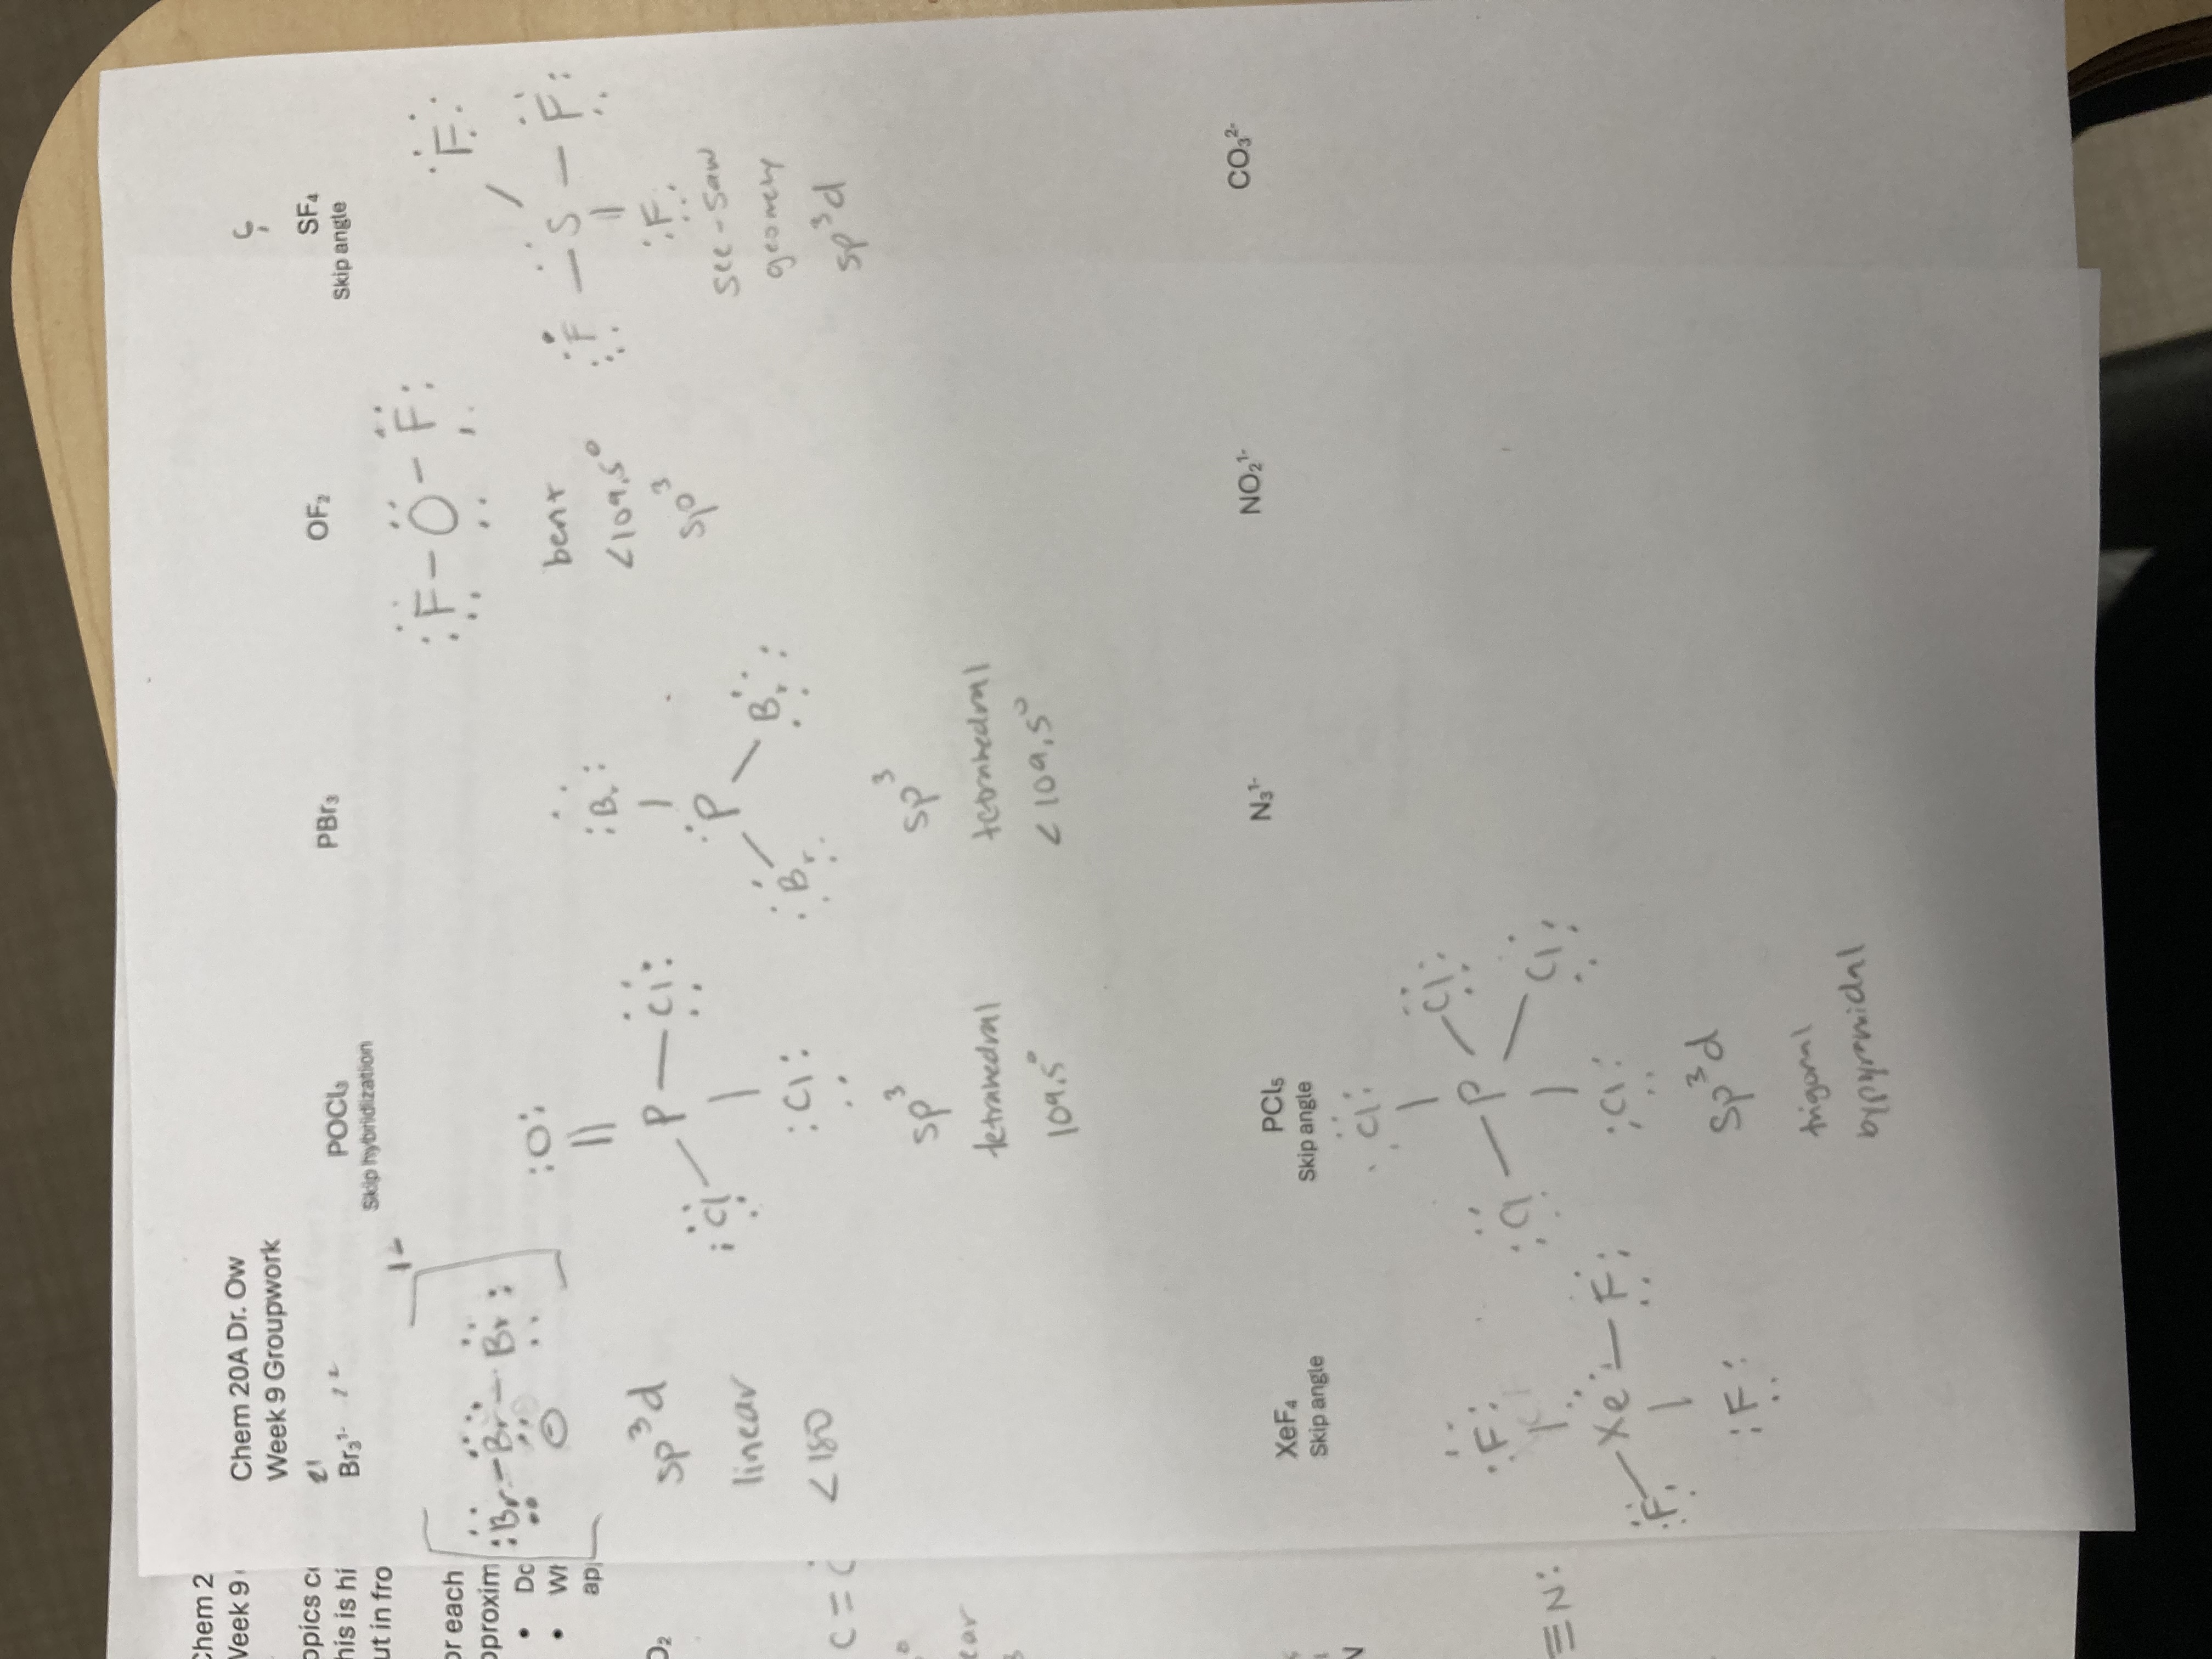 Chem 2
Week 9
opics c
his is hi
ut in fro
or each
pproxim
• Do
• Wh
ap
O₂
C=C
ear
≡N:
Chem 20A Dr. Ow
Week 9 Groupwork
Br₃¹⁻
[:Br-Br-Br:]¹⁻
sp³d
linear
<180
POCl₃
Skip hybridization
:O:
||
P — Cl:
:Cl
:Cl:
sp³
tetrahedral
109.5°
PBr₃
:Br:
|
P
:Br
Br:
sp³
tetrahedral
<109.5°
OF₂
:F-O-F:
bent
<109.5°
sp³
SF₄
Skip angle
F:
:F — S — F:
:F:
see-saw
geometry
sp³d
XeF₄
Skip angle
:F:
:F Xe — F:
:F:
PCl₅
Skip angle
Cl:
Cl:
:Cl — P
Cl:
:Cl:
sp³d
trigonal
bypyramidal
N₃¹⁻
NO₂¹⁻
CO₃²⁻